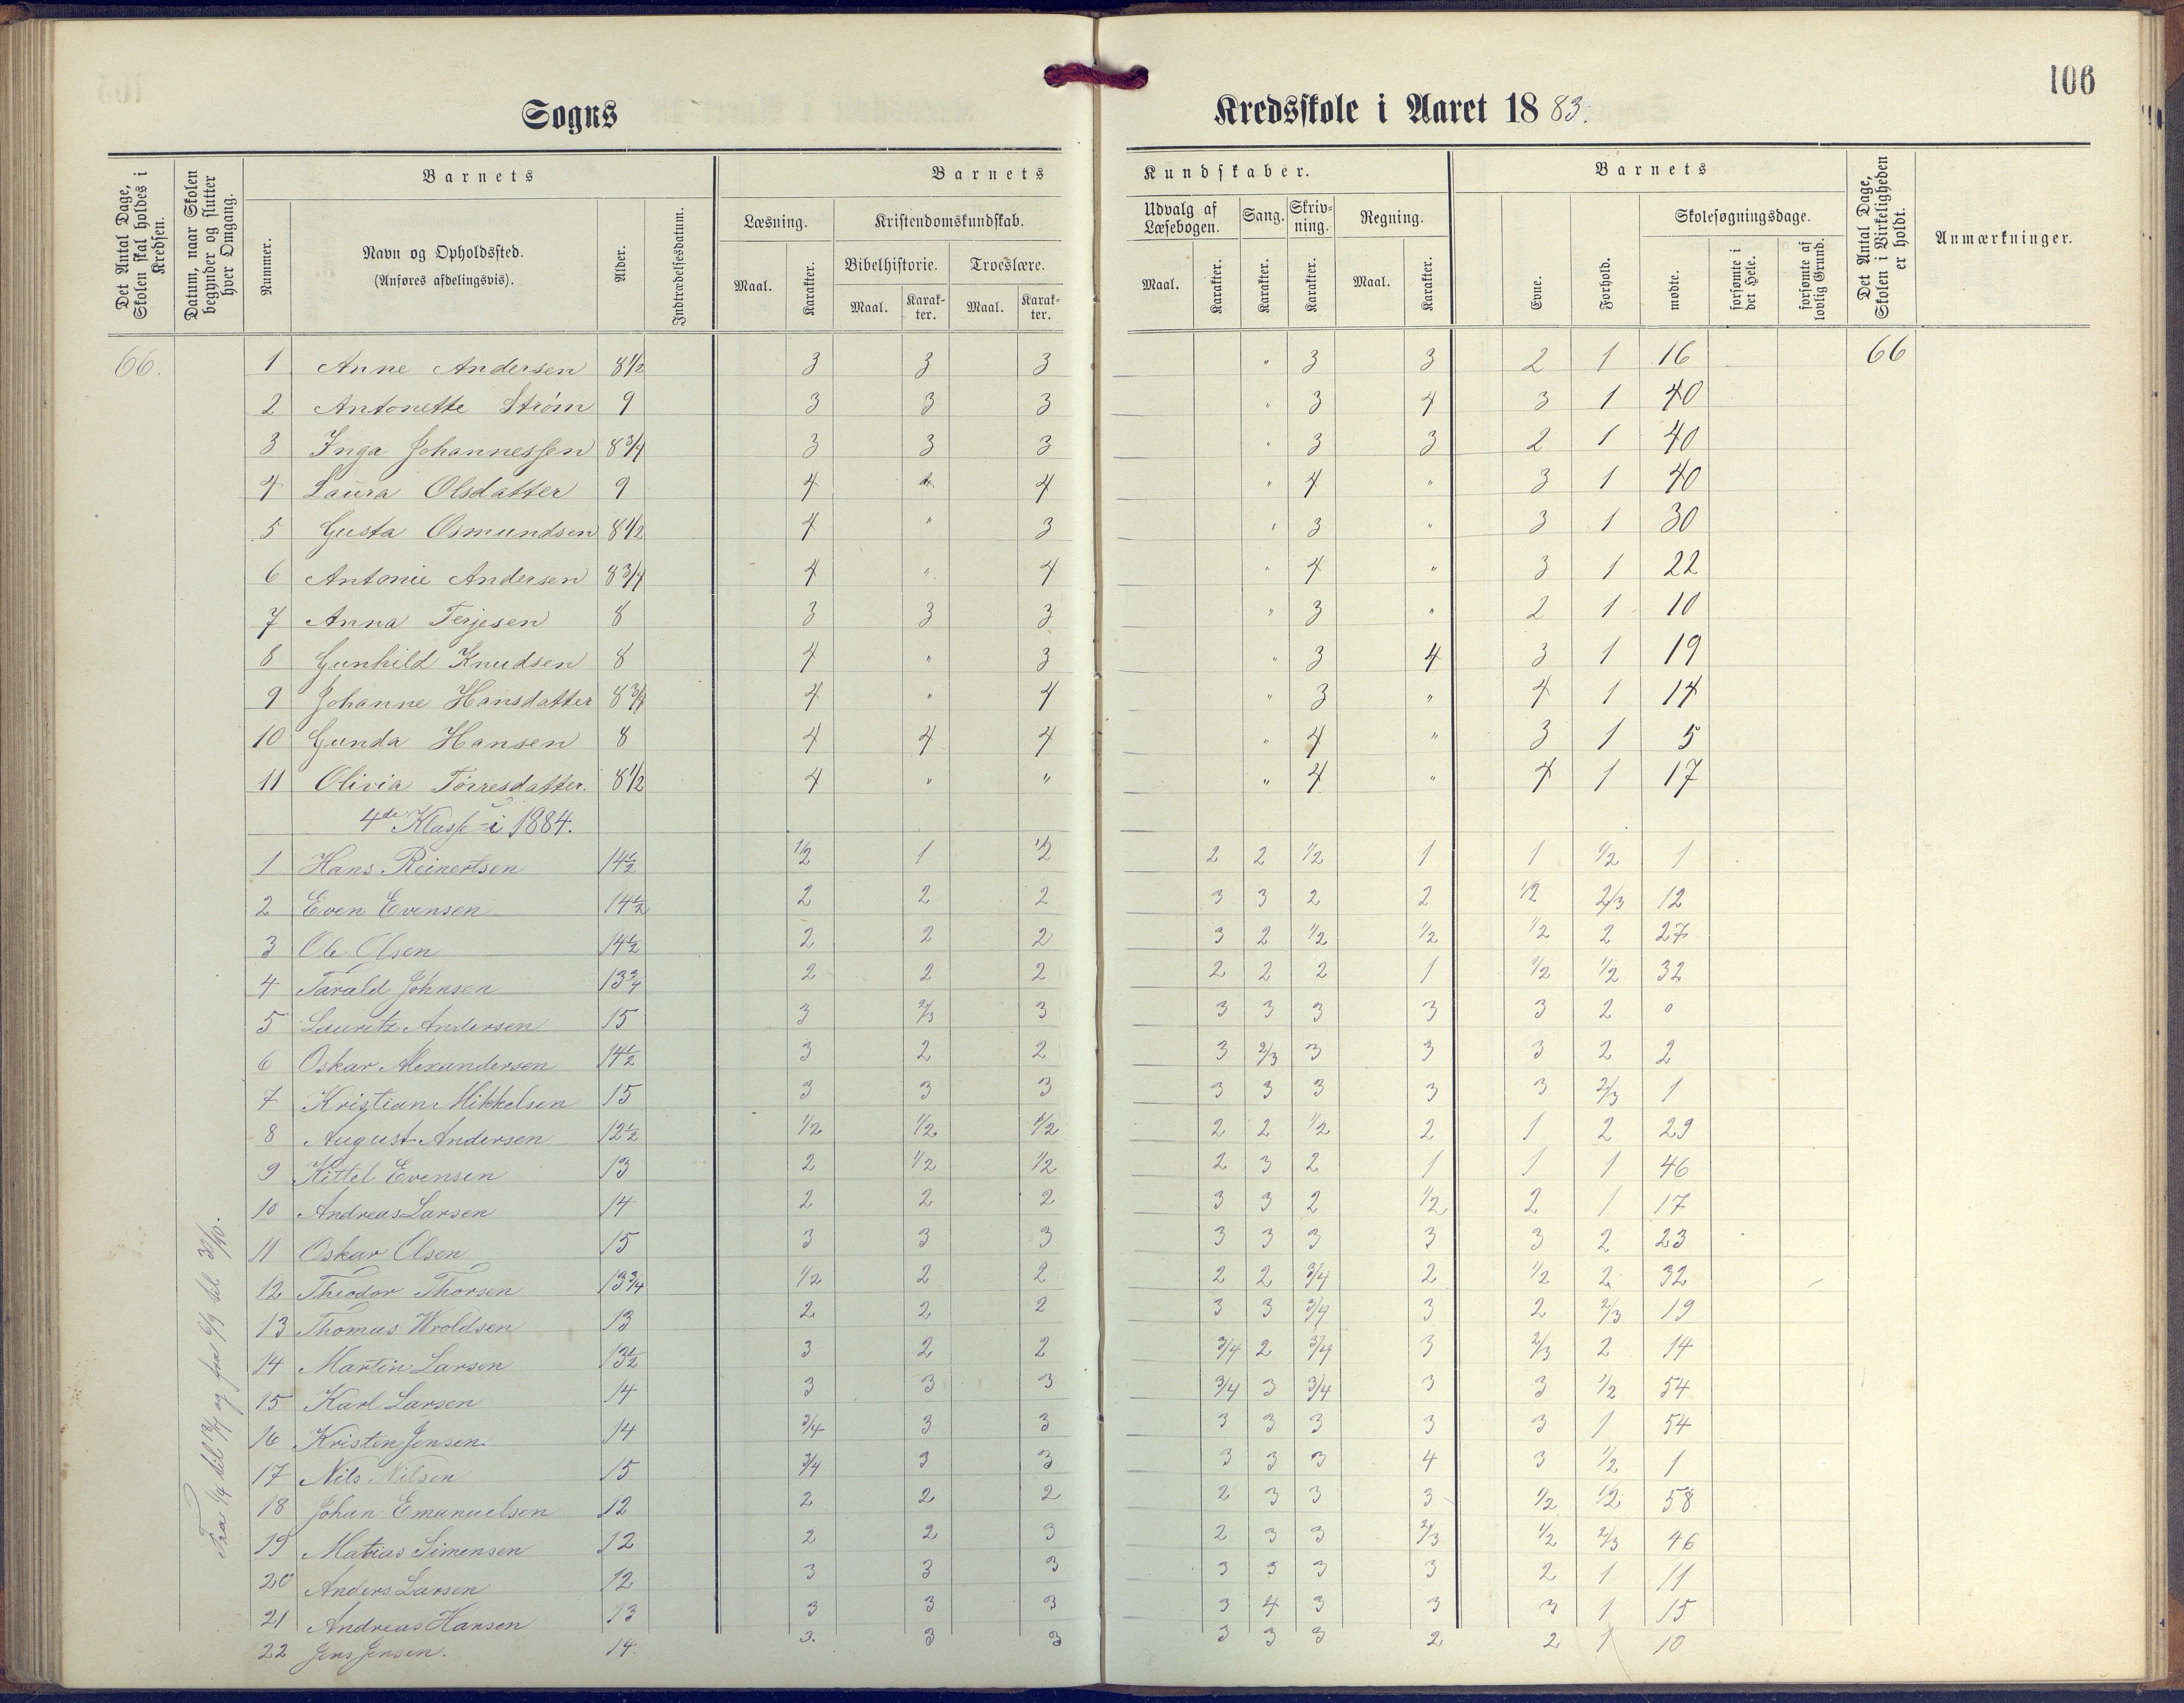 106
Sogns Kredsskole i Aaret 1883.
Det Antal Dage, Skolen skal holdes i Kredsen.
Datum, naar Skolen begynder og slutter hver Omgang.
Barnets
Nummer.
Navn og Opholdssted.
(Anføres afdelingsvis).
Alder.
Indtrædelsesdatum.
Barnets Kundskaber.
Læsning.
Maal. Karakter.
Kristendomskundskab.
Bibelhistorie. Troeslære.
Maal. Karakter. Maal. Karakter.
Udvalg af Læsebogen.
Maal. Karakter.
Sang.
Karakter.
Skrivning.
Karakter.
Regning.
Maal. Karakter.
Barnets
Evne. Forhold.
Skolesøgningsdage.
mødte. forsømte i det Hele. forsømte af lovlig Grund.
Det Antal Dage, Skolen i Virkeligheden er holdt.
Anmærkninger.
66. 1 Anne Andersen 8 1/2 3 3 3 " 3 3 2 1 16 66
2 Antonette Strøm 9 3 3 3 " 3 4 3 1 40
3 Inga Johannessen 8 3/4 3 3 3 " 3 3 2 1 40
4 Laura Olsdatter 9 4 4 4 " 4 " 3 1 40
5 Gusta Osmundsen 8 1/2 4 " 3 " 3 " 3 1 30
6 Antonie Andersen 8 3/4 4 " 4 " 4 " 3 1 22
7 Anna Terjesen 8 3 3 3 " 3 " 2 1 10
8 Gunhild Knudsen 8 4 " 3 " 3 4 3 1 19
9 Johanne Hansdatter 8 3/4 4 " 4 " 3 " 4 1 14
10 Gunda Hansen 8 4 4 4 " 4 " 3 1 5
11 Olivia Tørresdatter. 8 1/2 4 " " " 4 " 4 1 17
4de Klasse i 1884.
1 Hans Reinertsen 14 1/2 1/2 1 1/2 2 2 1/2 1 1 1/2 1
2 Even Evensen 14 1/2 2 2 2 3 3 2 2 1/2 2/3 12
3 Ole Olsen 14 1/2 2 2 2 3 2 1/2 1/2 1/2 2 27
4 Tarald Johnsen 13 3/4 2 2 2 2 2 2 1 1/2 1/2 32
5 Lauritz Andersen 15 3 2/3 3 3 3 3 3 3 2 0
6 Oskar Alexandersen 14 1/2 3 2 2 3 2/3 3 3 3 2 2
7 Kristian Mikkelsen 15 3 3 3 3 3 3 3 3 2/3 1
8 August Andersen 12 1/2 1/2 1/2 1/2 2 2 1/2 2 1 2 29
9 Kittel Evensen 13 2 1/2 1/2 2 3 2 1 1 1 46
10 Andreas Larsen 14 2 2 2 3 3 2 1/2 2 1 17
11 Oskar Olsen 15 3 3 3 3 3 3 3 3 2 23
12 Theodor Thorsen 13 3/4 1/2 2 2 2 2 3/4 2 1/2 2 32
13 Thomas Wroldsen 13 2 2 2 3 3 3/4 3 2 2/3 19
14 Martin Larsen 13 1/2 3 2 2 3/4 2 3/4 3 2/3 2 14
15 Karl Larsen 14 3 3 3 3/4 3 3/4 3 3 1/2 54
16 Kristen Jensen 14 3/4 3 3 3 3 3 3 3 1 54
17 Nils Nilsen 15 3/4 3 3 3 3 3 4 3 1/2 1
18 Johan Emanuelsen 12 2 2 2 2 3 3 3 1/2 1/2 58
19 Matias Simensen 12 2 2 3 2 3 3 2/3 1/2 2/3 46
20 Anders Larsen 12 3 3 3 3 3 3 3 2 1 11
21 Andreas Hansen 13 3 3 3 3 4 3 3 3 1 15
22 Jens Jensen. 14. 3. 3 3 3 3 3 2 2 1 10